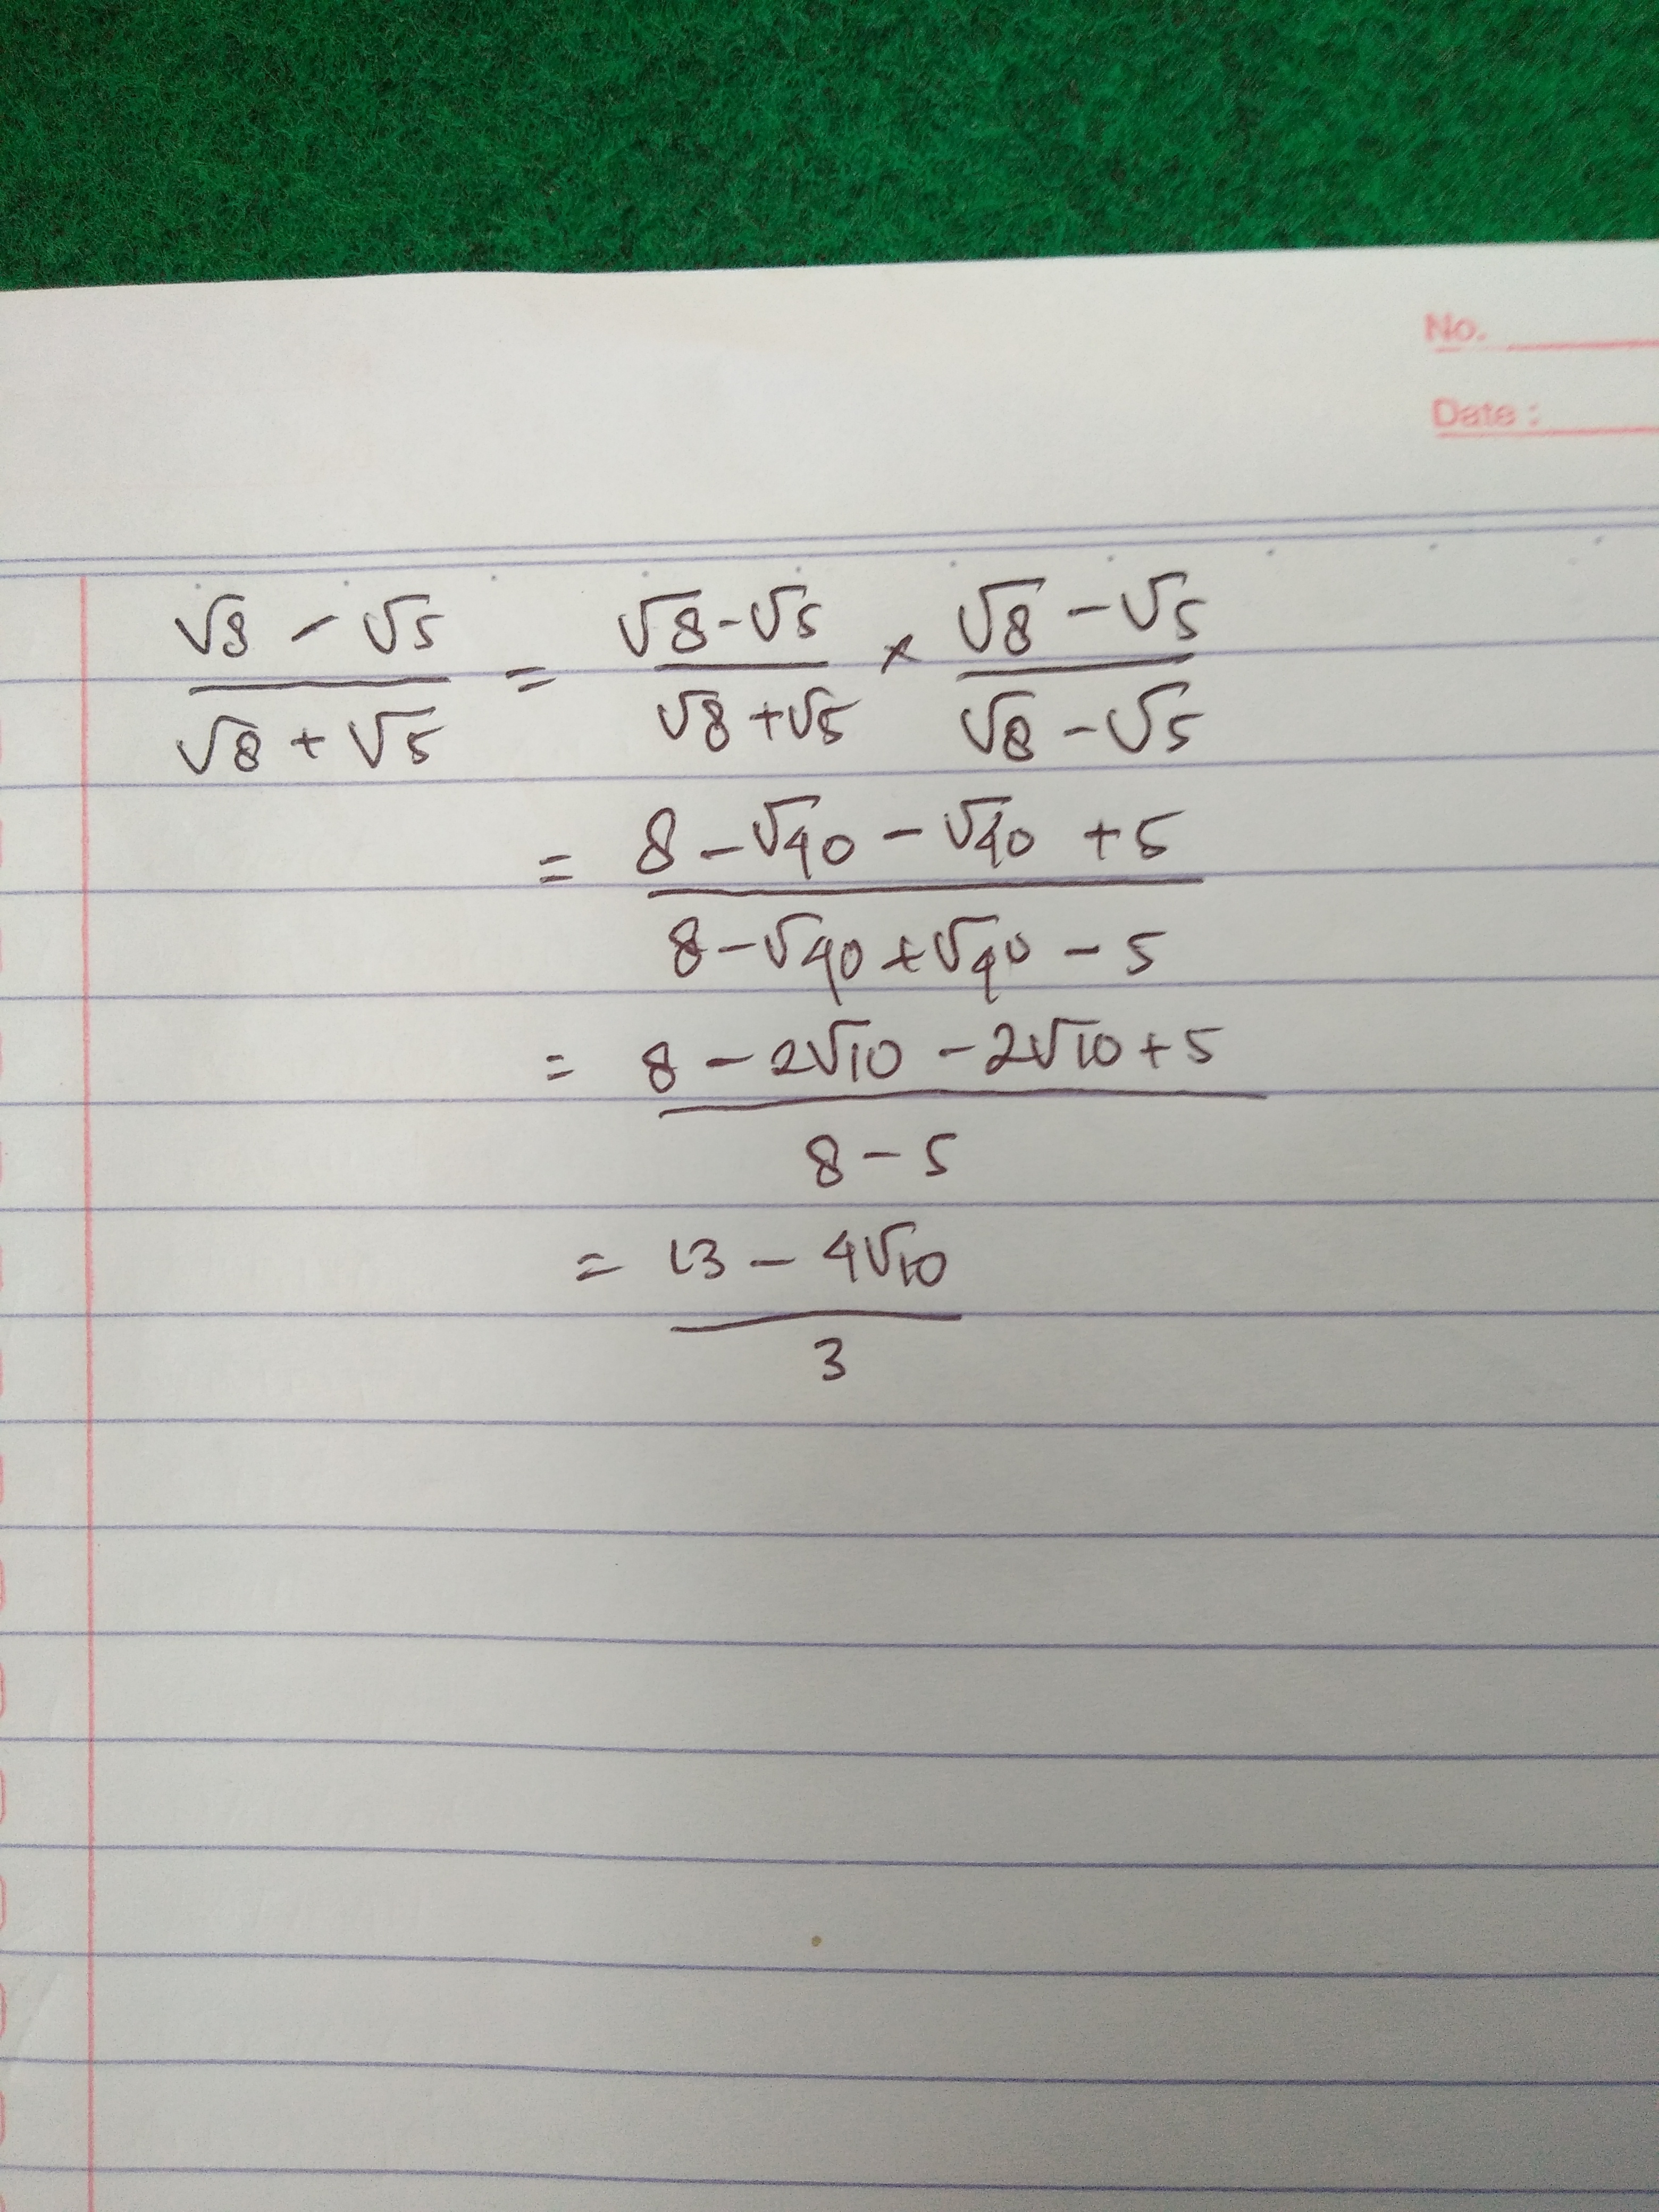 No.
Date :
√8 - √5 / √8 + √5 = √8-√5 / √8+√5 × √8-√5 / √8-√5
= 8-√40-√40+5 / 8-√40+√40-5
= 8-2√10-2√10+5 / 8-5
= 13-4√10 / 3